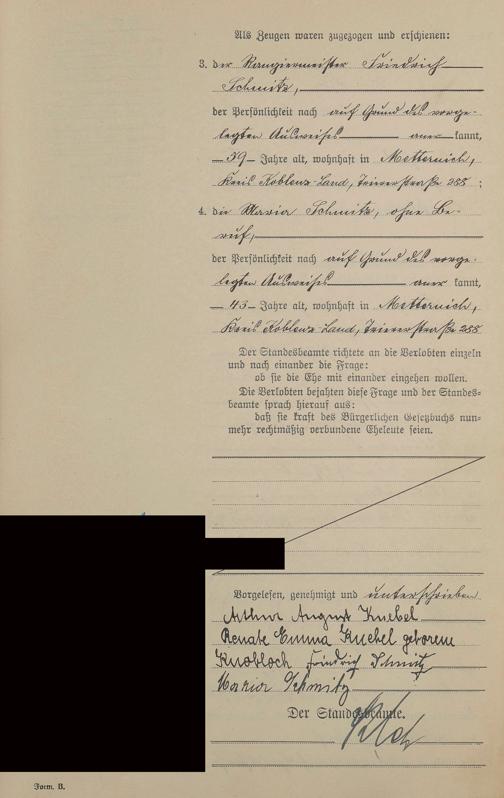 Als Zeugen waren zugezogen und erschienen:
3. der Rangiermeister Friedrich
Schmitz,
der Persönlichkeit nach auf Grund des vorge-
legten Ausweises aner kannt,
39 Jahre alt, wohnhaft in Metternich,
Kreis Koblenz-Land, Triererstraße 288 ;
4. die Maria Schmitz, ohne Be-
ruf,
der Persönlichkeit nach auf Grund des vorge-
legten Ausweises aner kannt,
43 Jahre alt, wohnhaft in Metternich,
Kreis Koblenz-Land, Triererstraße 288
Der Standesbeamte richtete an die Verlobten einzeln
und nach einander die Frage:
ob sie die Ehe mit einander eingehen wollen.
Die Verlobten bejahten diese Frage und der Standes-
beamte sprach hierauf aus:
daß sie kraft des Bürgerlichen Gesetzbuchs nun-
mehr rechtmäßig verbundene Eheleute seien.
Vorgelesen, genehmigt und unterschrieben
Arthur August Knebel
Renate Emma Knebel geborene
Knobloch Friedrich Schmitz
Maria Schmitz
Der Standesbeamte.
Form. B.